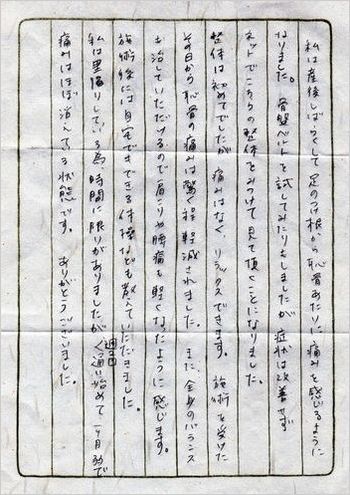 私は産後しばらくして足のつけ根から恥骨あたりに痛みを感じるように
なりました。骨盤ベルトを試してみたりもしましたが症状は改善せず
ネットでこちらの整体をみつけて見て頂くことになりました。
整体は初めてでしたが痛みはなくリラックスできます。施術を受けた
その日から恥骨の痛みは驚く程軽減されました。また、全身のバランス
も治していただけるので肩こりや腰痛も軽くなったように感じます。
施術後には自宅でできる体操なども教えていただきました。
私は里帰りしている為時間に限りがありましたが週2回く通い始めて一ヶ月弱で
痛みはほぼ治んてる状態です。ありがとうございました。